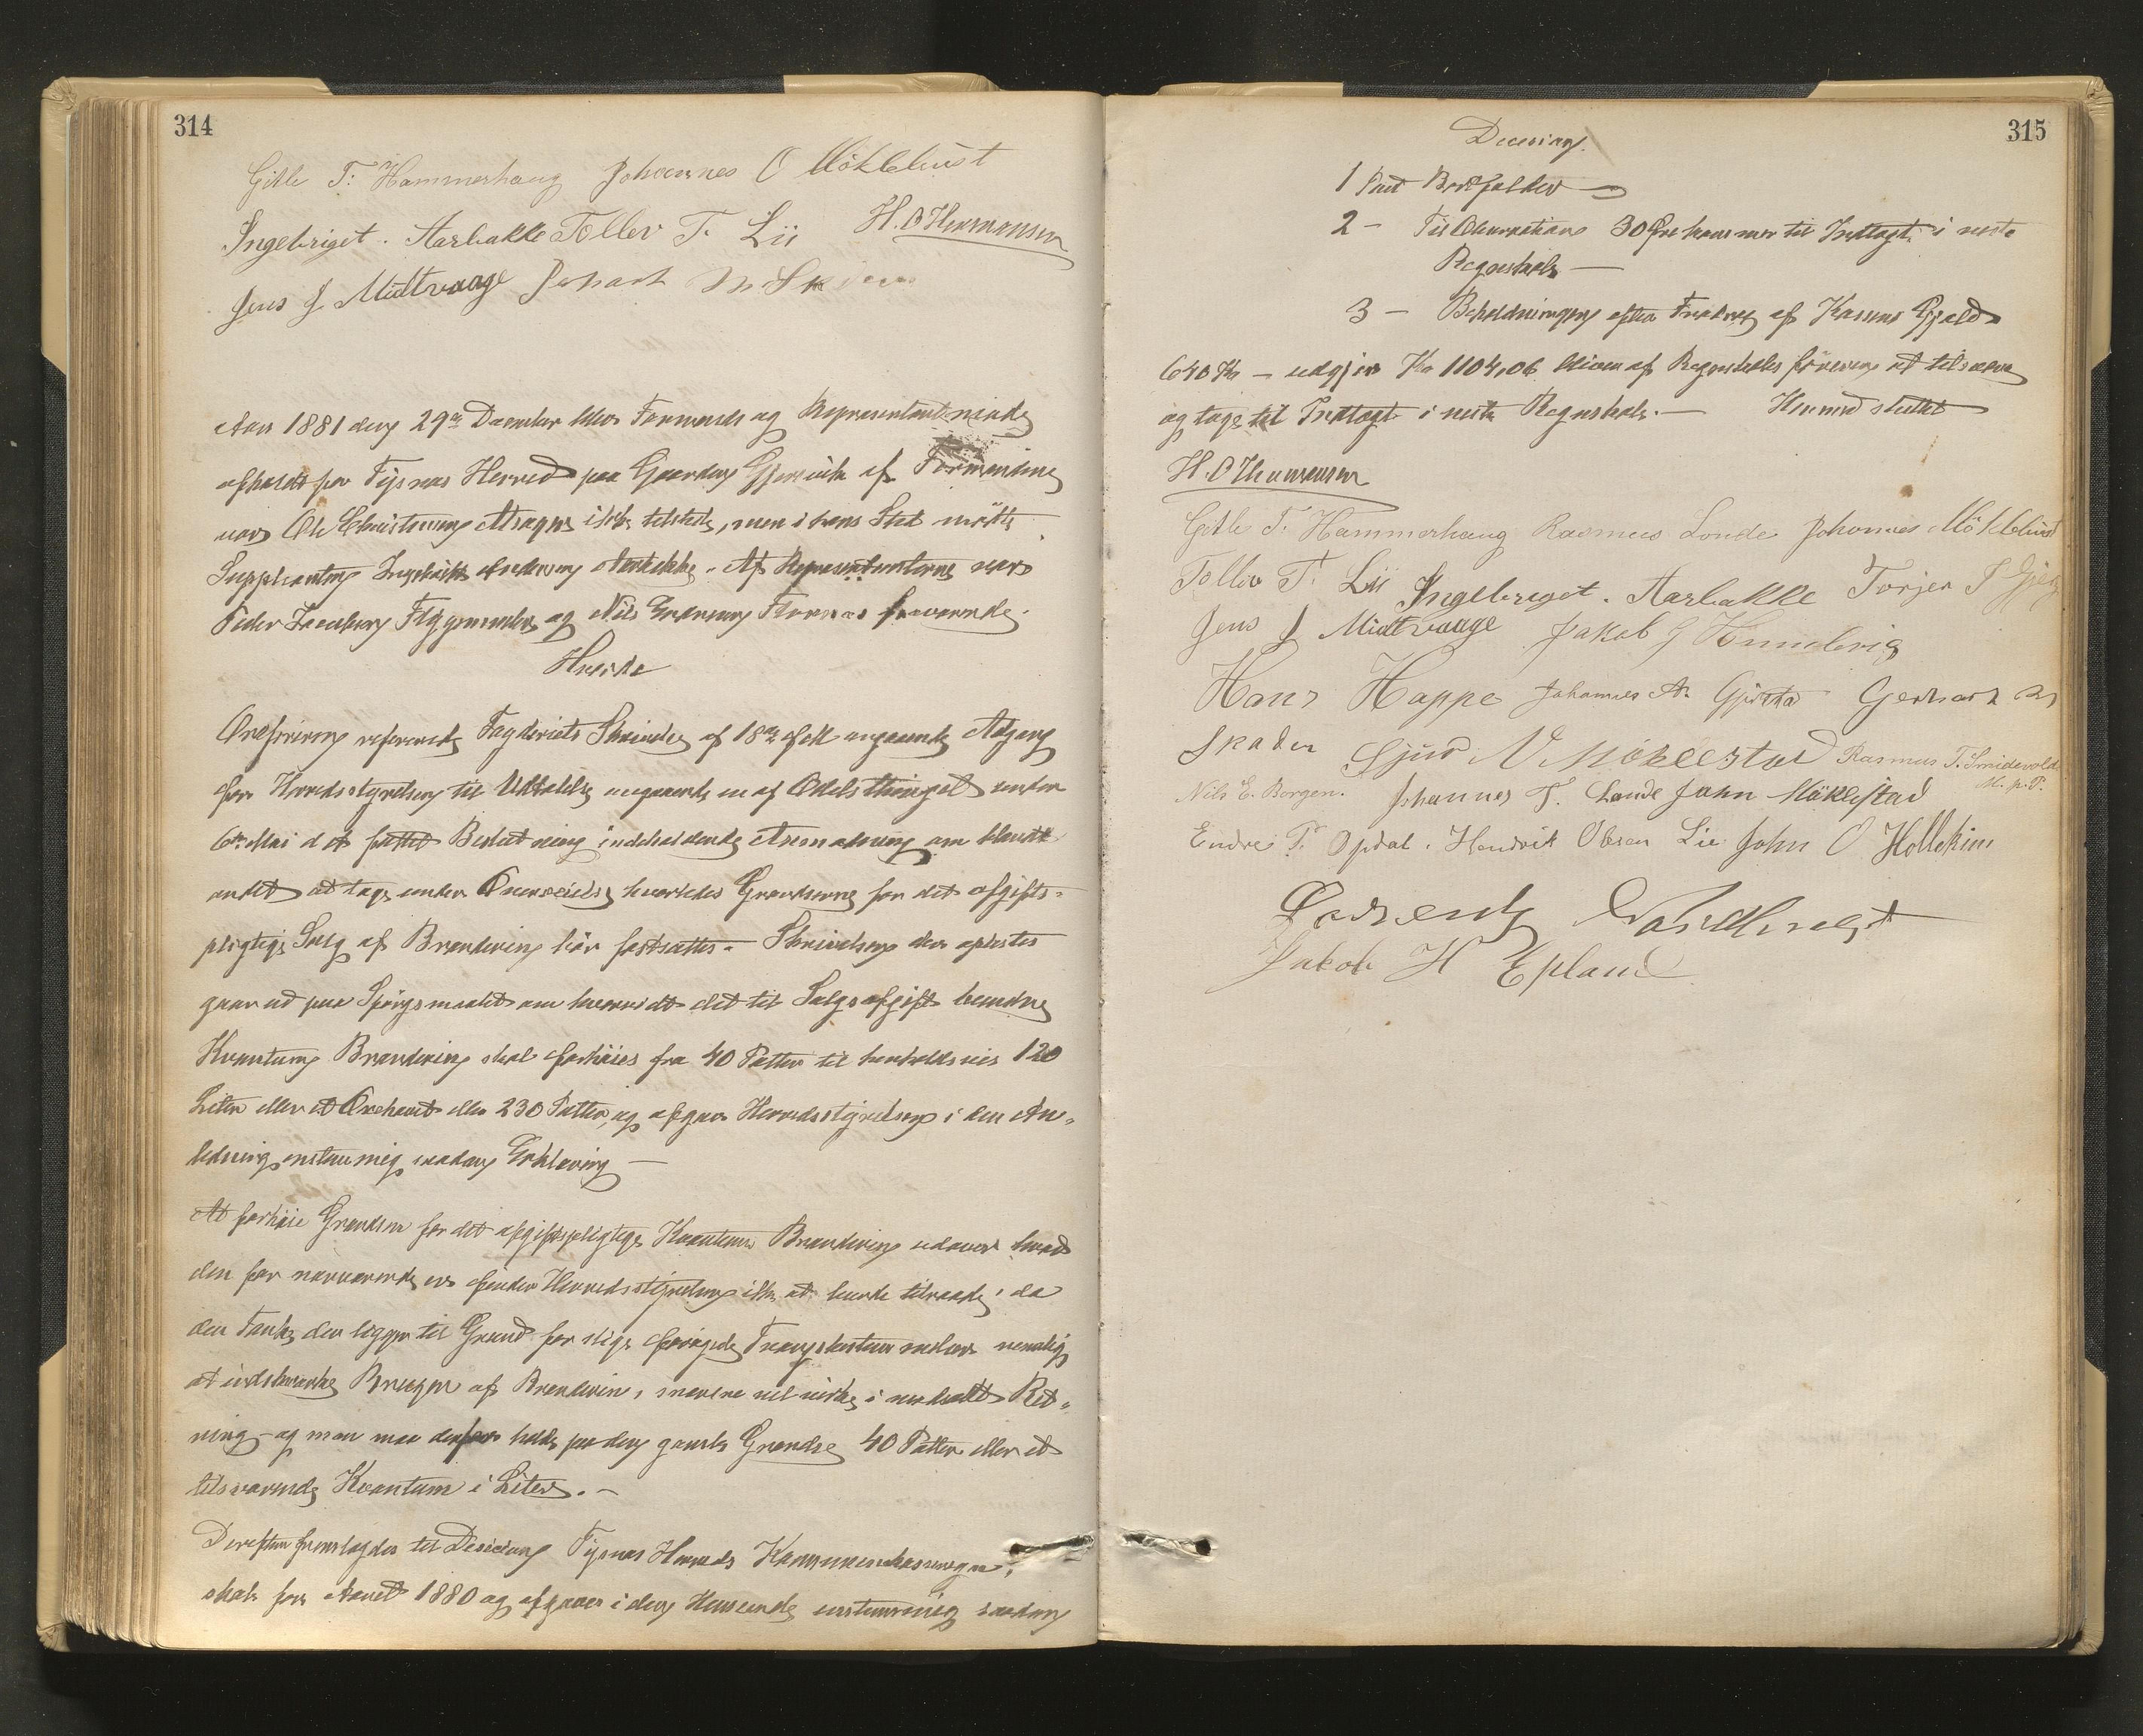 314
Gitle T. Hammerhaug Johannes O Møklebust
Ingebrigt. Aarbakke Tollev T. Lii H. O Hermansen
Jens J Midtvaage
Aar 1881 den 29de December blev Formands og Repræsentantmøde
afholdt for Tysnæs Herred paa Gaarden Gjersvik af Formændene
var Ole Christensen ikke tilstede, men i hans Sted mødte
Supplianten Ingebrikt Aarbakke. Af Repræsentanterne var
Peder og Nils fraværende.
Hvorda
Ordføreren refererede Fogderiets Skrivelse af 18de ds angaaende Adgang
for Herredsstyrelsen til Udtalelse angaaende en af Odelsthinget under
6te Mai d. A. fattet Beslutning indeholdende Anmodning om blandt
andet at tage under Overveielse hvorledes Grændserne for det afgifts-
pligtige Salg af Brændeviin bør fastsættes. Skrivelsen der oplæstes
gaar ud paa Spørgsmaalet om hvorvidt det til Salgsafgift bundne
Kvantum Brændeviin skal forhøies fra 40 Potter til henholdsvis 120
Liter eller et Oxehoved eller 230 Potter, og afgav Herredsstyrelsen i den An-
ledning enstemmig saadan Erklæring —
At forhøie Grændsen for det afgiftspligtige Kvantum Brændeviin udover hvad
den for nærværende er finder Herredsstyrelsen ikke at burde tilraade, da
den Tanke der ligger til Grund for slige Tvangsbestemmelser nemlig
at indskrænke Brugen af Brændeviin, snarere vil virke i modsat Ret-
ning - og man maa derfor holde paa den gamle Grændse 40 Potter eller et
tilsvarende Kvantum i Liter. —
Derefter fremlagdes til Decision Tysnæs Herreds Kommunekasseregn-
skab for Aaret 1880 og afgaves i den Henseende enstemmig saadan
315
Decision.
1 Post Bortfalder —
2 — Til Observations 30 Øre kommer til Indtægt i neste
Regnskab —
3 — Beholdningen efter Fradrag af Kassens Gjæld
640 Kr — udgjør Kr 1104,06 bliver af Regnskabsføreren at tilsvare
og tage til Indtægt i neste Regnskab. — Hermed sluttet
H. O Hermansen
Gitle T. Hammerhaug Rasmus Lande Johannes Møklebust
Tollev T. Lii Ingebrigt. Aarbakke Torjer
Jens J Midtvaage Jakob J Hunnevig
Hans Happe Johannes A. Gjerstad Gerhard M
Skaden Sjur N Møklestad Rasmus T. Smidsvold
Nils E. Borgen. Johannes T. Lande John Møklestad M. p. P.
Endre P. Opdal. Hendrik Olsen Lie John O Hollekim
Lorents
Jakob H Epland